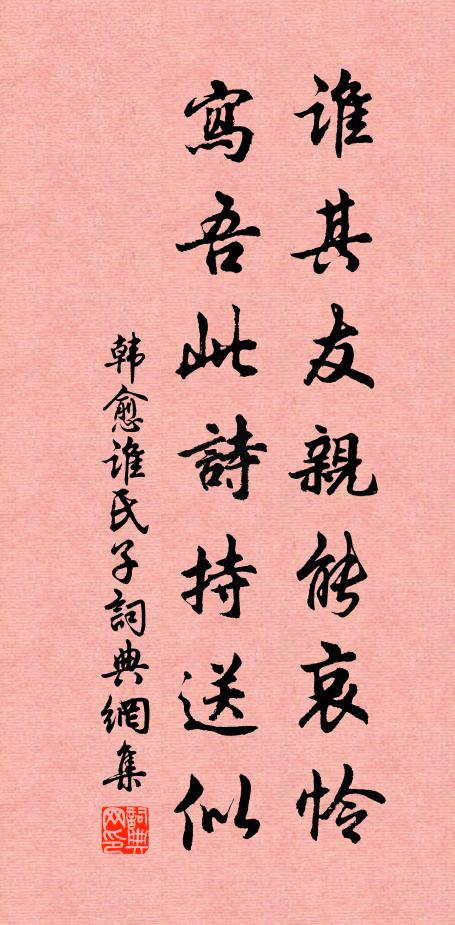 谁其友親能哀怜
寫吾此詩持送似
韩愈谁氏子詞典網集
詞典网印